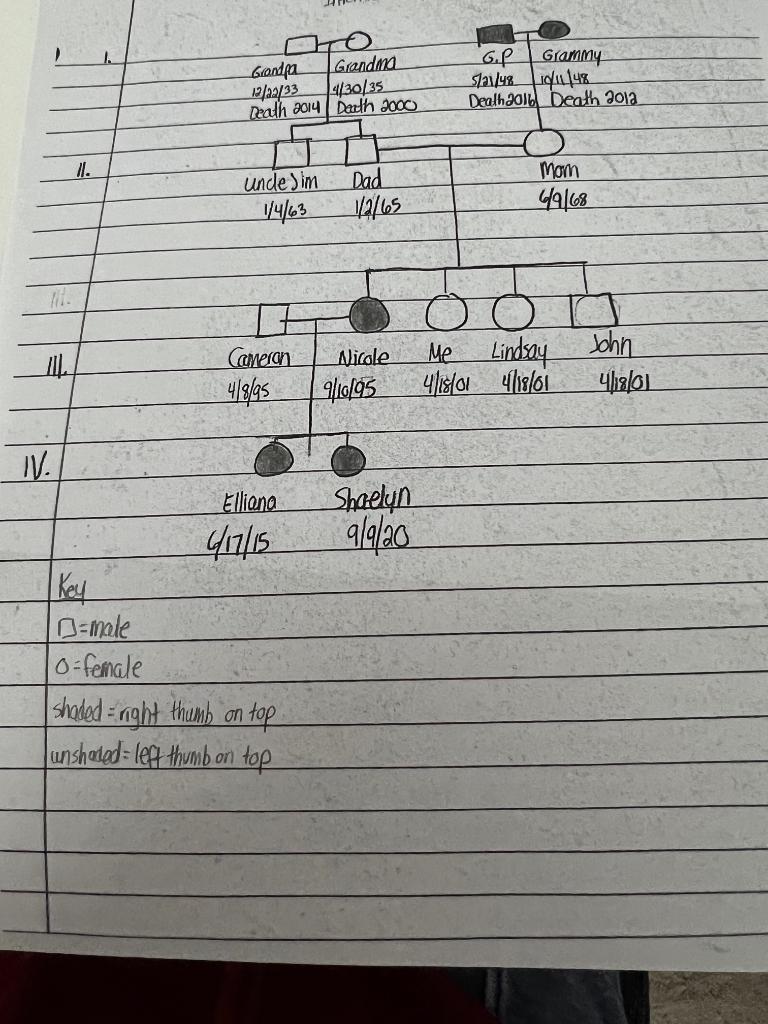 I.
Grandpa Grandma G.P Grammy
12/22/33 4/30/35 5/21/48 10/11/48
Death 2014 Death 2000 Death 2016 Death 2012
II.
Uncle Jim Dad Mom
1/4/63 1/2/65 6/9/68
III.
III.
Cameron Nicole Me Lindsay John
4/8/95 9/10/95 4/18/01 4/18/01 4/18/01
IV.
Elliana Shaelyn
6/17/15 9/9/20
Key
□=male
O=female
shaded=right thumb on top
unshaded=left thumb on top